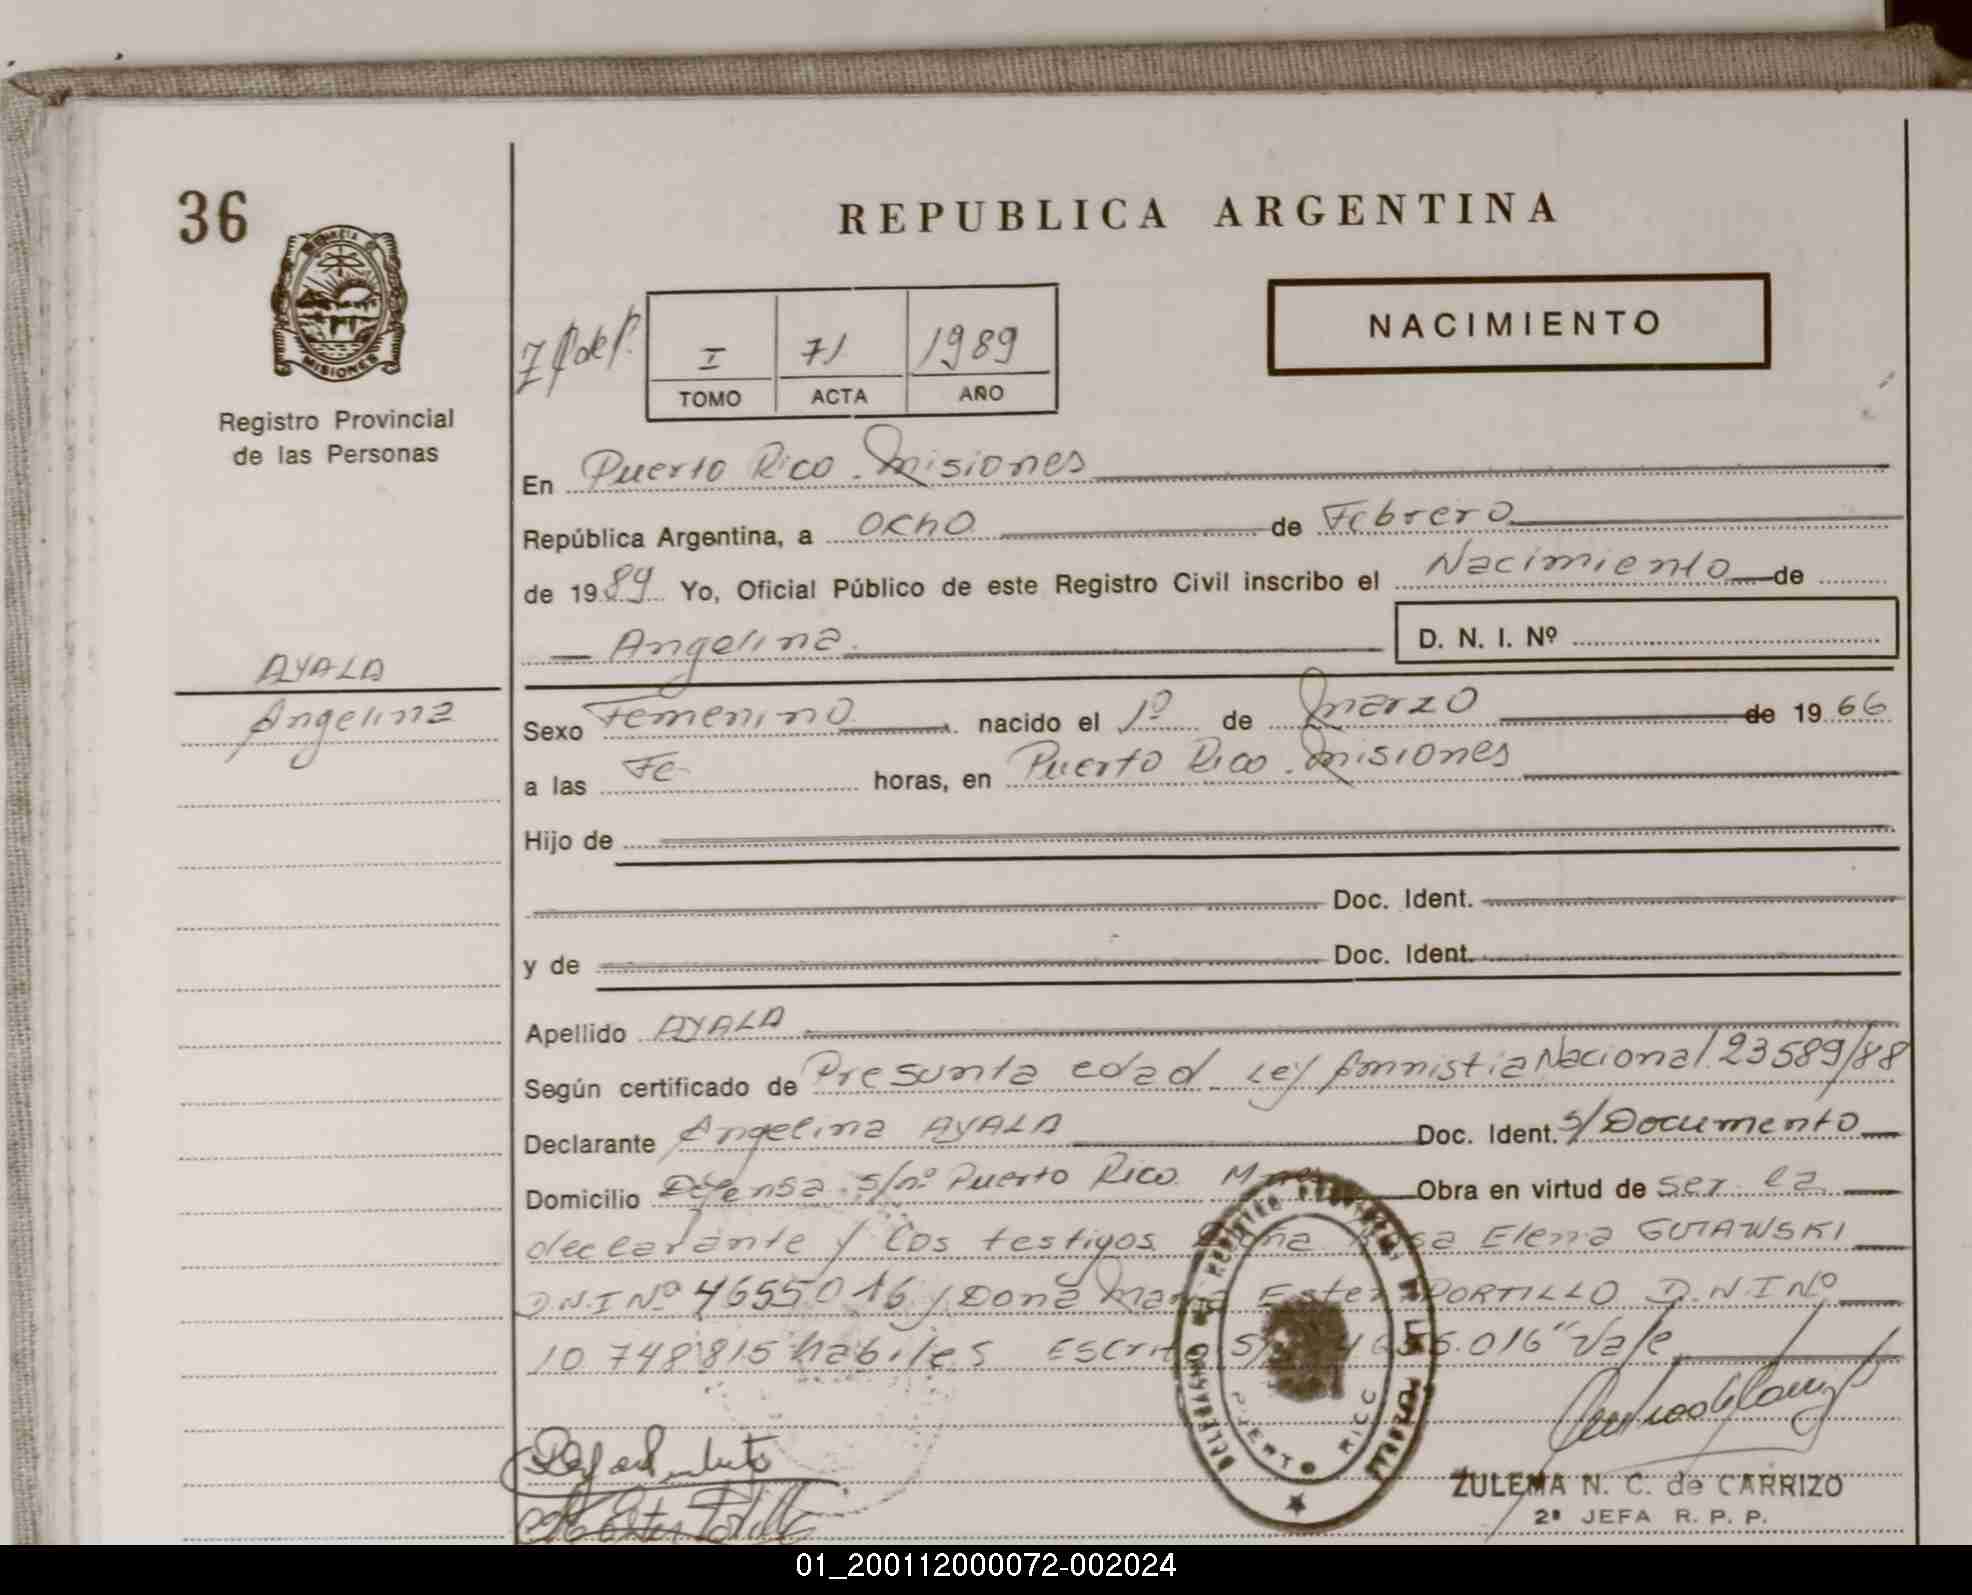 36
REPUBLICA ARGENTINA
PROVINCIA DE
MISIONES
Registro Provincial
de las Personas
I 71 1989
TOMO ACTA AÑO
NACIMIENTO
En Puerto Rico. Misiones
República Argentina, a ocho de Febrero
de 1989 Yo, Oficial Público de este Registro Civil inscribo el Nacimiento de
Angelina. D. N. I. Nº
AYALA
Angelina
Sexo Femenino nacido el 1º de marzo de 1966
a las Fe- horas, en Puerto Rico. Misiones
Hijo de
Doc. Ident.
y de Doc. Ident.
Apellido AYALA
Según certificado de Presunta edad Ley Amnistia Nacional 23589/88
Declarante Angelina AYALA Doc. Ident. s/Documento
Domicilio Defensa s/nº Puerto Rico. Obra en virtud de ser la
declarante y los testigos Elena GUTAWSKI
D.N.I Nº 4655016 y Doña Maria Ester PORTILLO D.N.I Nº
10.748.815 habiles Escrito 4655.016" Vale
PUERTO RICO
ZULEMA N. C. de CARRIZO
2ª JEFA R. P. P.
01_200112000072-002024